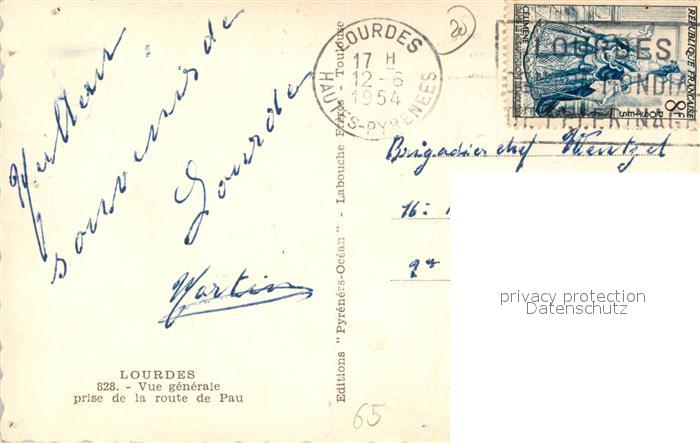 Meilleur
souvenir de
Lourde
Martin
LOURDES
828. - Vue générale
prise de la route de Pau
Editions "Pyrénées-Océan" - Labouche Frères - Toulouse
65
20
LOURDES
17 H
12-6
1954
HAUTES-PYRENEES
REPUBLIQUE FRANÇAISE
CELIMENE
8F
POSTES
LOURDES
MONDIAL
PELERINAGE
Brigadier chef Wentzel
16
privacy protection
Datenschutz